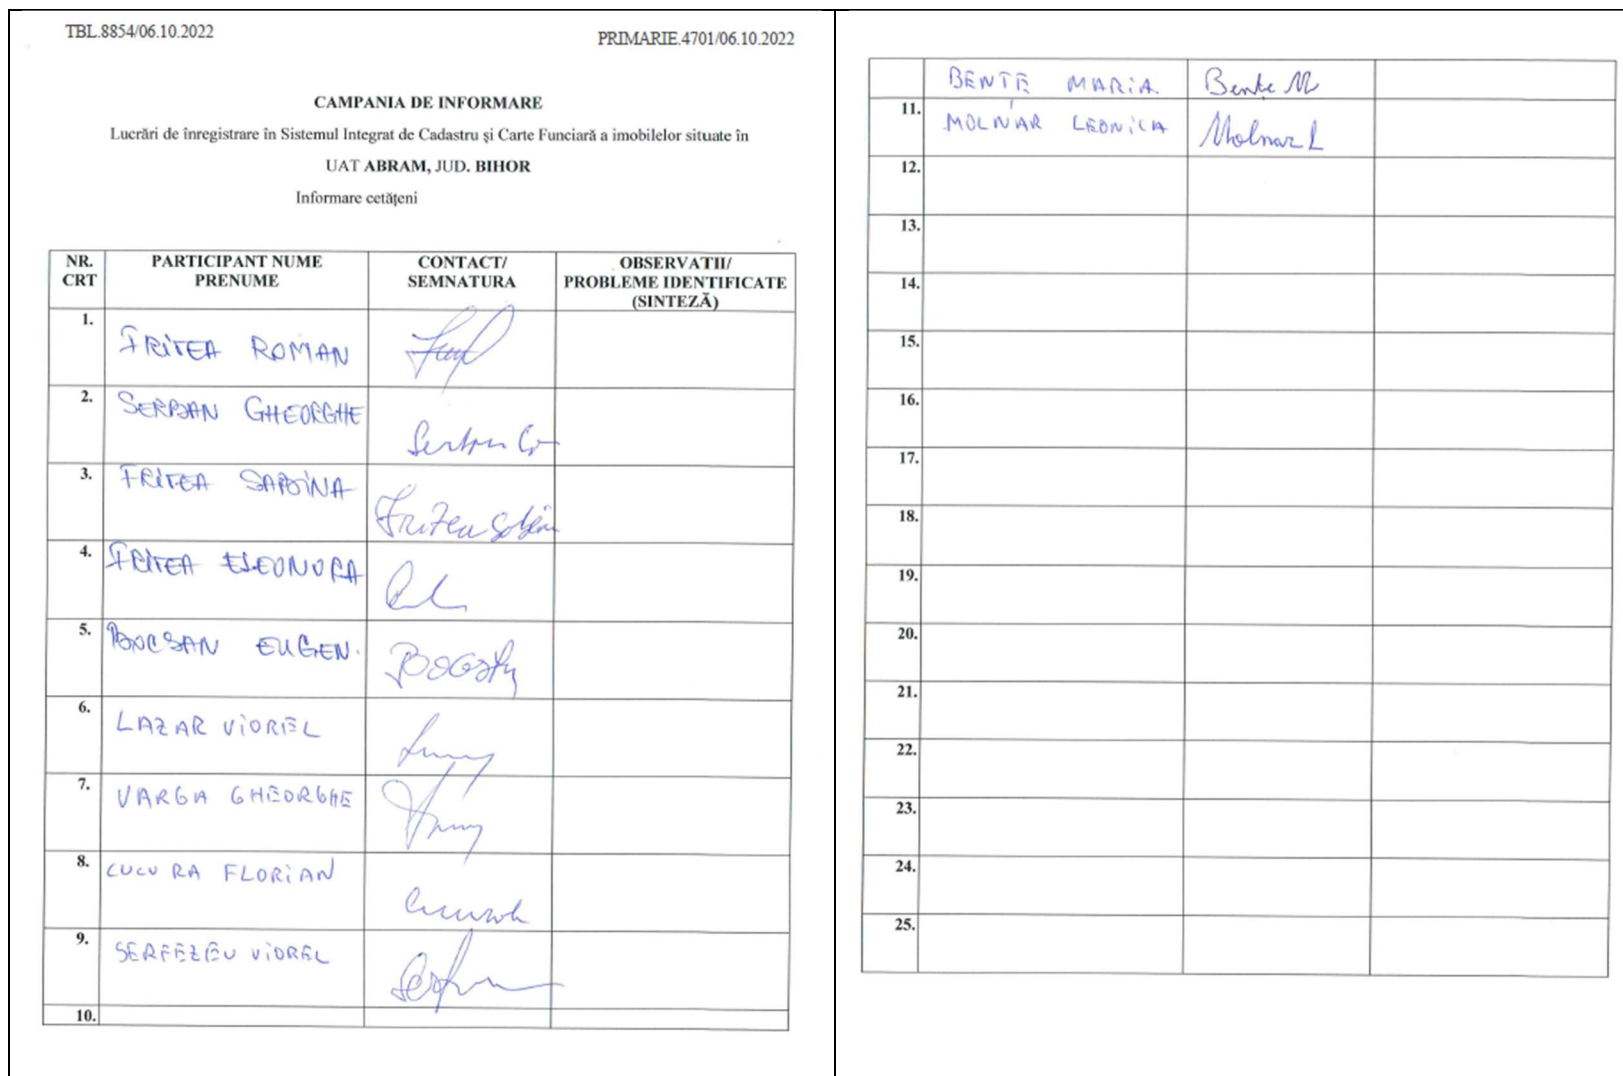 TBL.8854/06.10.2022
PRIMARIE.4701/06.10.2022
CAMPANIA DE INFORMARE
Lucrări de înregistrare în Sistemul Integrat de Cadastru și Carte Funciară a imobilelor situate în
UAT ABRAM, JUD. BIHOR
Informare cetățeni
NR. CRT PARTICIPANT NUME PRENUME CONTACT/ SEMNATURA OBSERVATII/ PROBLEME IDENTIFICATE (SINTEZĂ)
1. FRITEA ROMAN
2. SERBAN GHEORGHE
3. FRITEA SABINA Fritea Sabina
4. FRITEA ELEONORA
5. BOCSAN EUGEN.
6. LAZAR VIOREL
7. VARGA GHEORGHE
8. CUCU RA FLORIAN
9. SERFEZEU VIOREL
10.
BENTE MARIA Bente M
11. MOLNAR LEONICA Molnar L
12.
13.
14.
15.
16.
17.
18.
19.
20.
21.
22.
23.
24.
25.